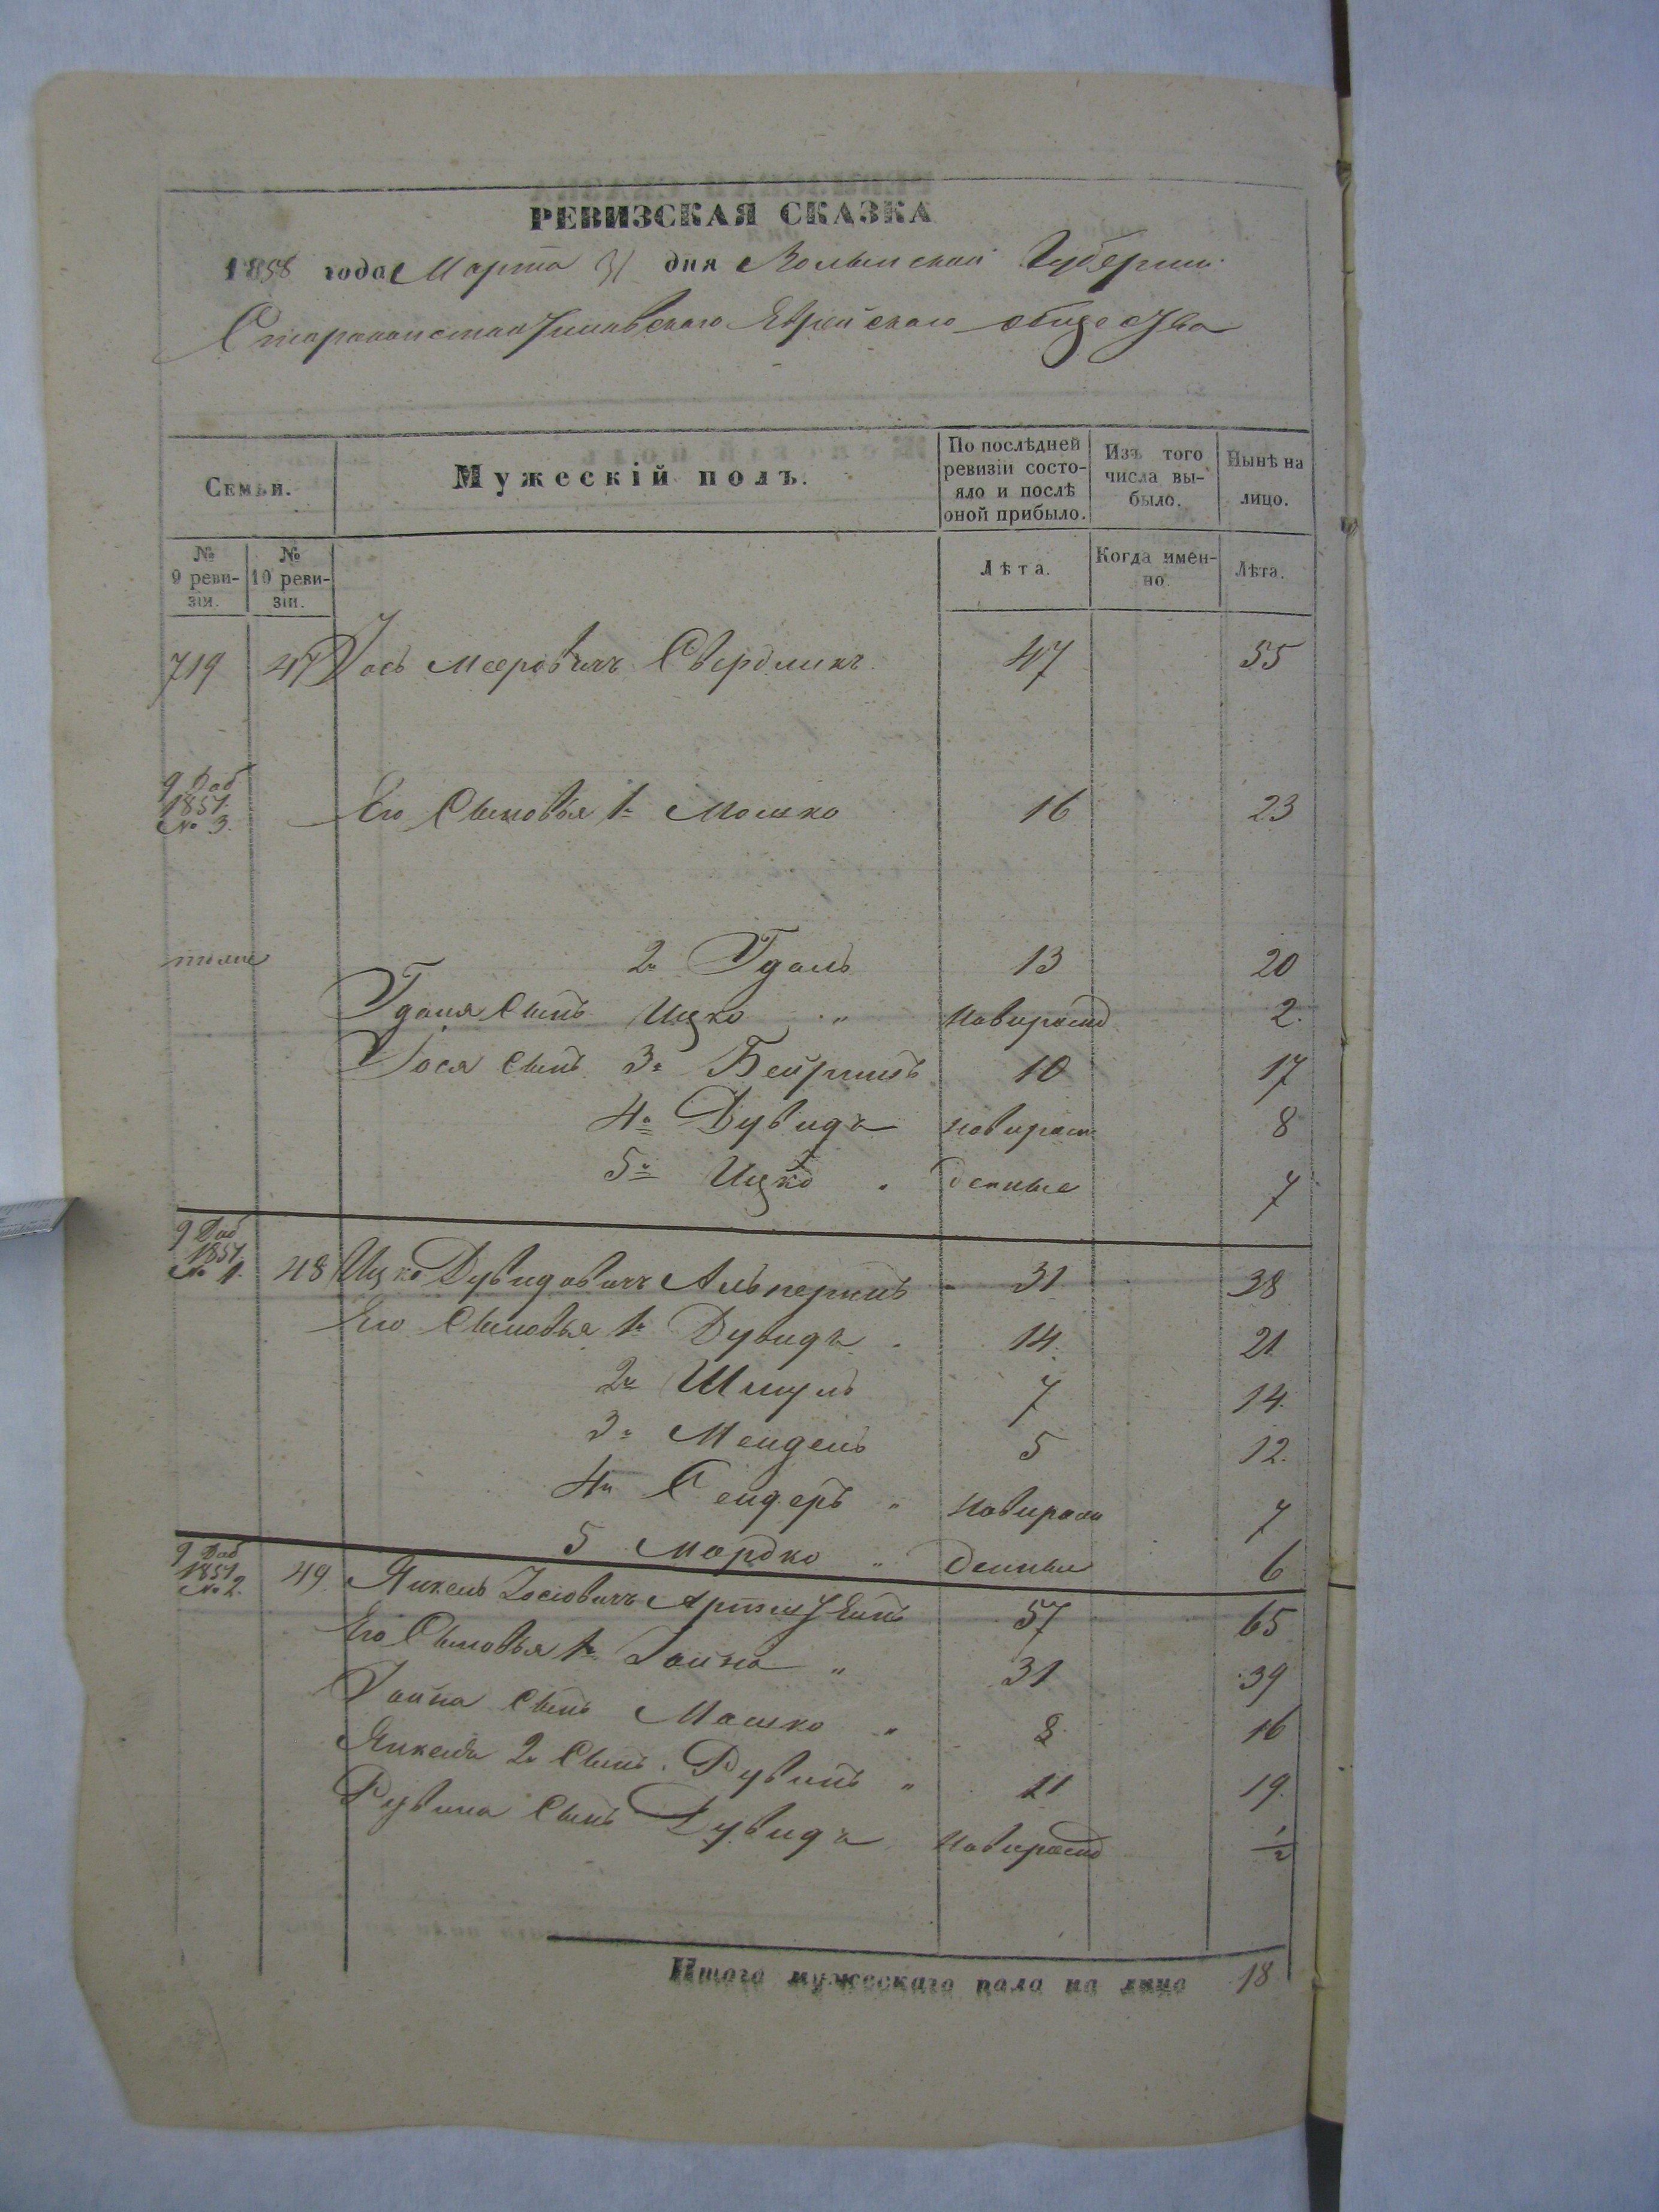 РЕВИЗСКАЯ СКАЗКА
1858 года Марта 31 дня Волынской Губернии
Староконстантиновского Еврейского общества
Семьи. Мужескій полъ. По послѣдней ревизіи состояло и послѣ оной прибыло. Изъ того числа выбыло. Нынѣ на лицо.
№ 9 ревизіи. № 10 ревизіи. Лѣта. Когда именно. Лѣта.
719 47 Іось Мееровичъ Свердликъ 47 55
9 Доб 1851. № 3. Его Сыновья 1й Мошко 16 23
тоже 2й Гдаль 13 20
Гдаля Сынъ Ицко " новорожд 2.
Іося Сынъ 3й Бейришъ 10 17
4й Дувидъ новорож 8
5й Ицко " денные 7
9 Доб 1851. № 1. 48 Ицко Дувидовичъ Альперинъ - 31 38
Его Сыновья 1й Дувидъ 14. 21
2й Шмуль 7 14.
3й Мендель 5 12.
4й Сендеръ " новорож 7
5 Мордко " денные 6
9 Доб 1851 № 2. 49 Янкель Іосіовичъ 57 65
Его Сыновья 1й Іойна " 31 39
Іойна Сынъ Мошко " 8 16
Янкеля 2й Сынъ Рувинъ " 11 19.
Рувина Сынъ Дувидъ новорожд 1/2
Итого мужескаго пола на лицо 18